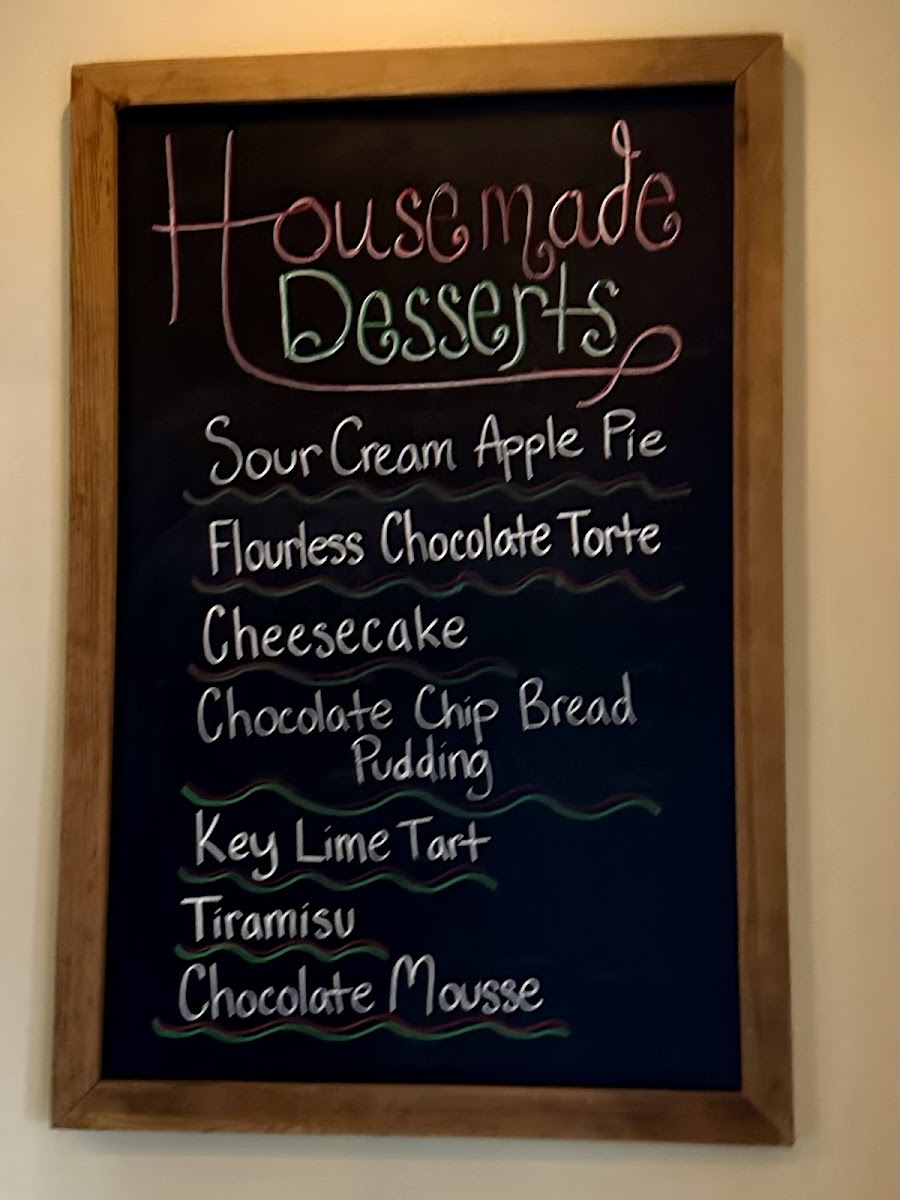 Housemade
Desserts
Sour Cream Apple Pie
Flourless Chocolate Torte
Cheesecake
Chocolate Chip Bread
Pudding
Key Lime Tart
Tiramisu
Chocolate Mousse